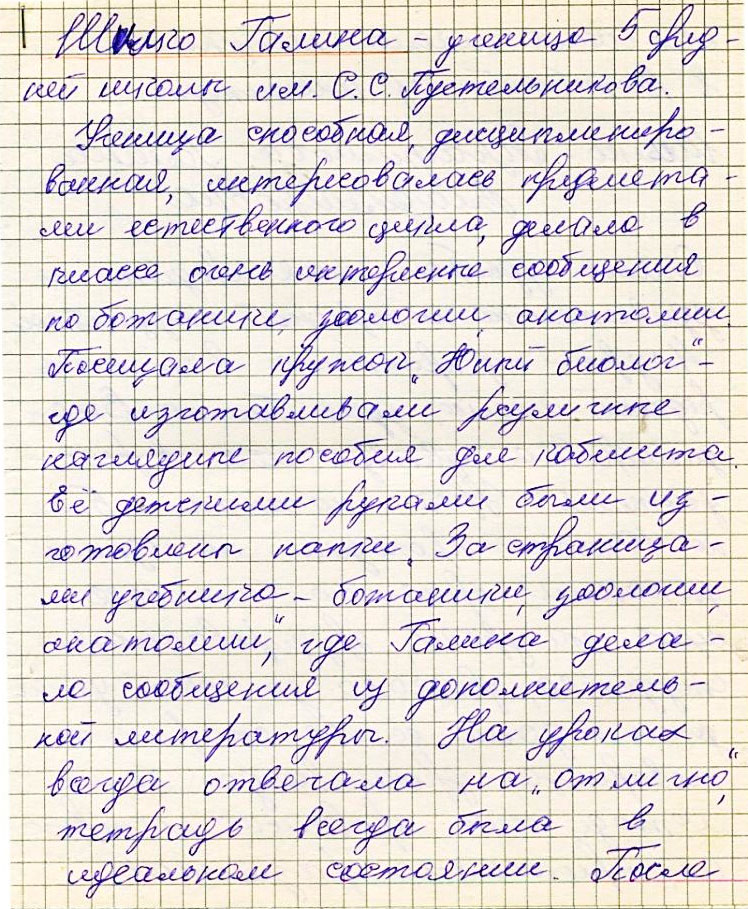 Галина - ученица 5 сред-
ней школы им. С. С. Пустельникова.
Ученица способная, дисциплиниро-
ванная, интересовалась предмета-
ми естественного цикла, делала в
классе очень интересные сообщения
по ботанике, зоологии, анатомии.
Посещала кружок "Юный биолог" -
где изготавливали различные
наглядные пособия для кабинета.
Её детскими руками были из-
готовлены папки "За страница-
ми учебника - ботаники, зоологии,
анатомии", где Галина дела-
ла сообщения из дополнитель-
ной литературы. На уроках
всегда отвечала на "отлично",
тетрадь всегда была в
идеальном состоянии. После